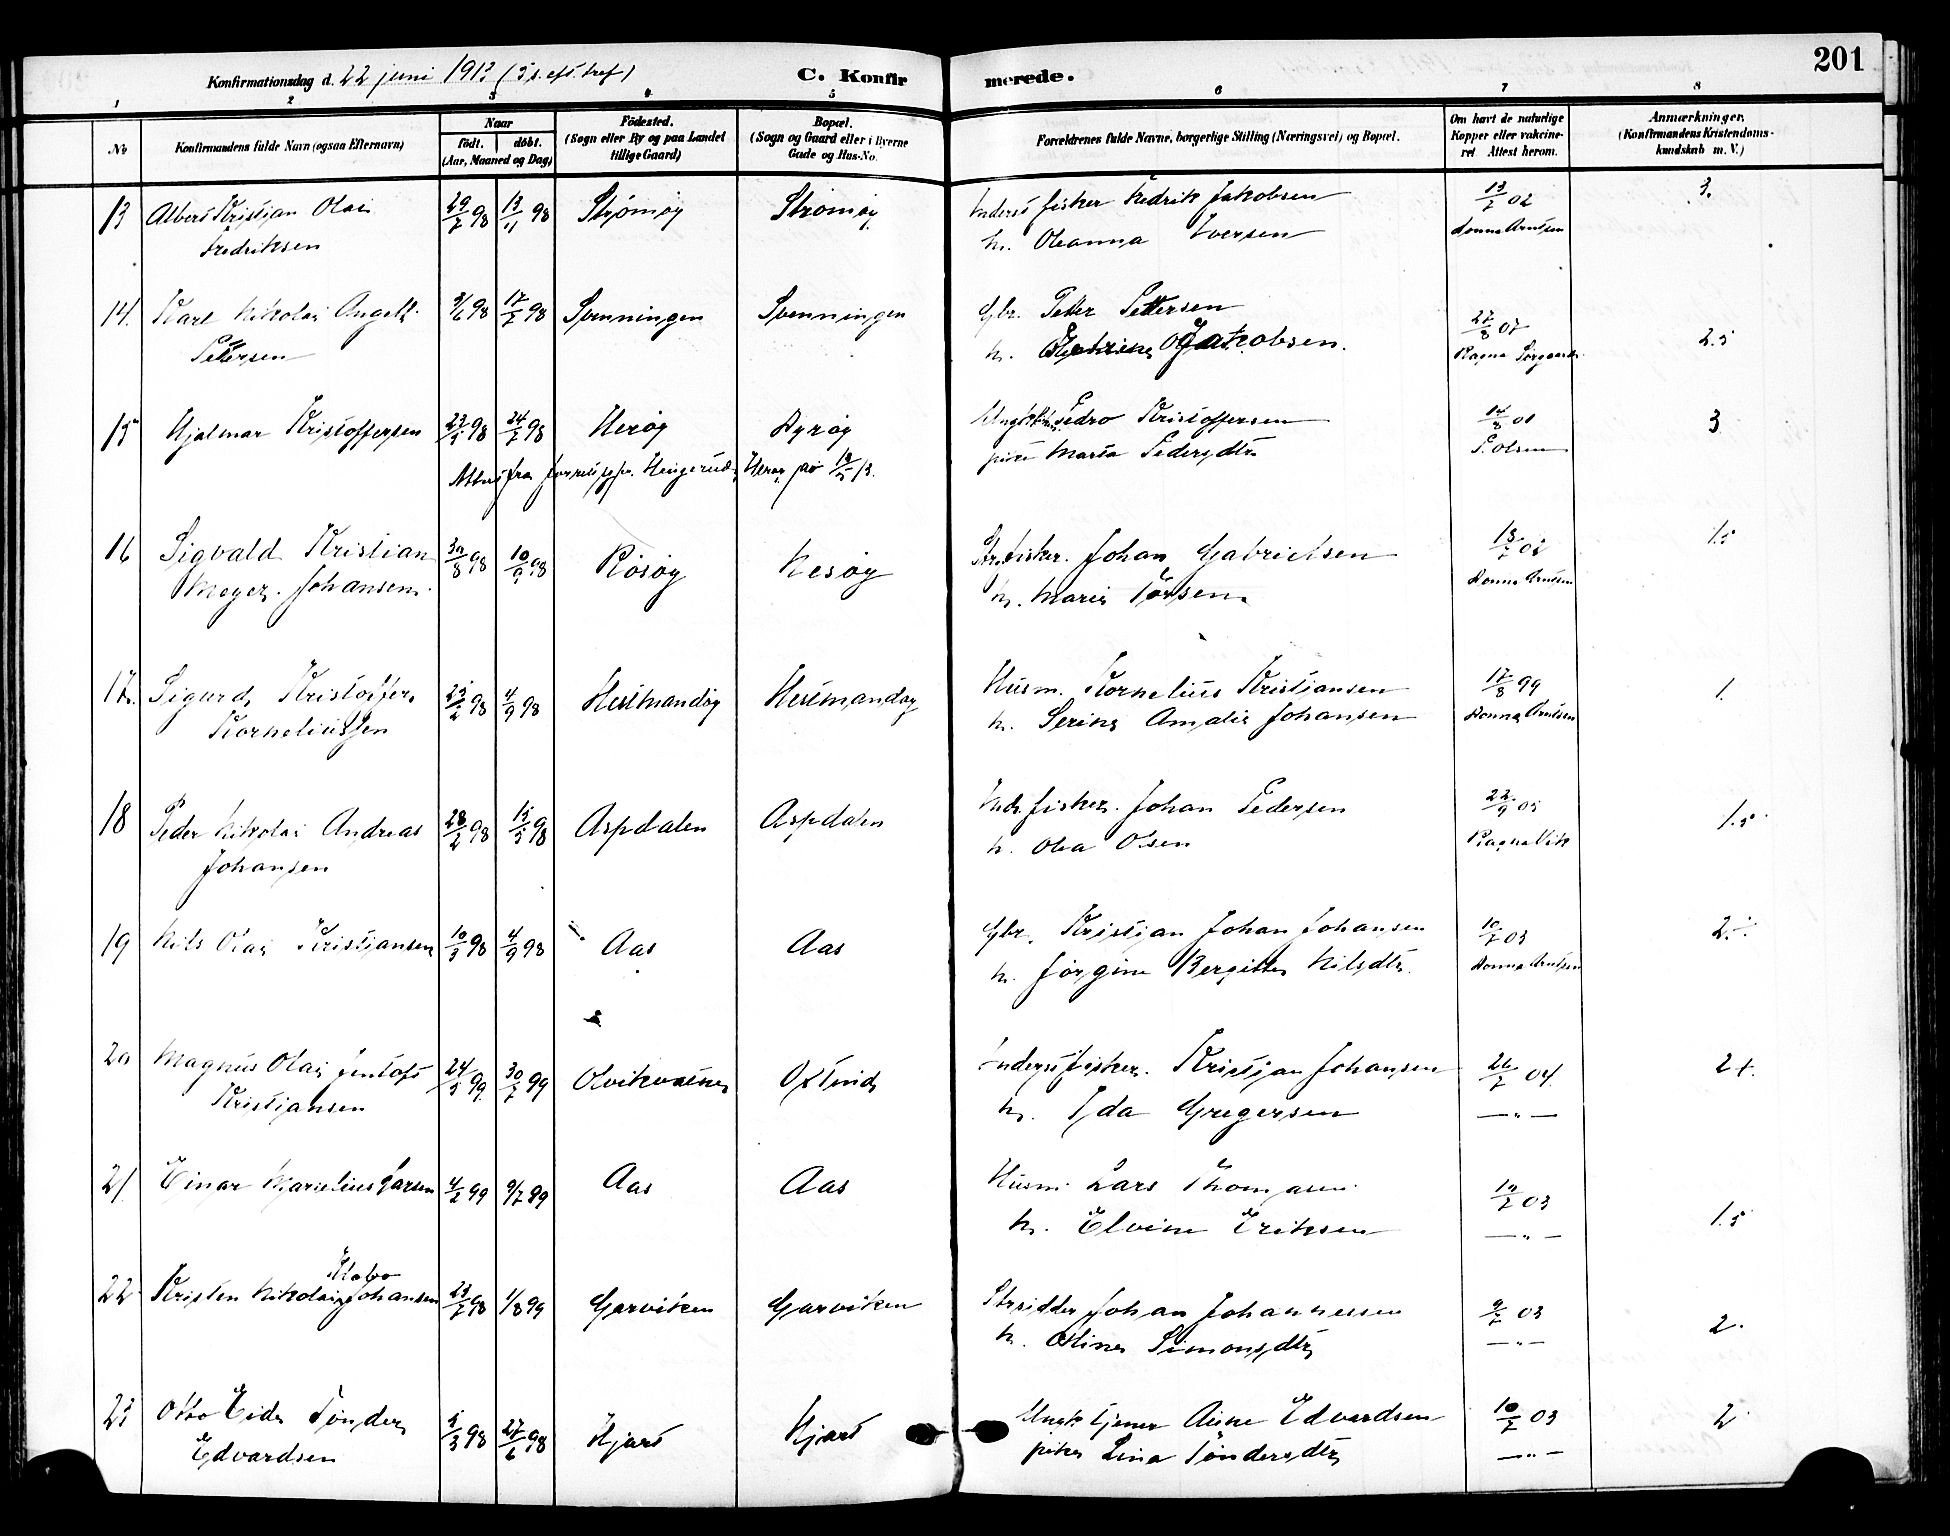 201
Konfirmationsdag d. 22 juni 1913 (5 s. eft. tref)
C. Konfirmerede.
1 2 3 4 5 6 7 8
No
Konfirmandens fulde Navn (ogsaa Efternavn)
Naar
født. døbt.
(Aar, Maaned og Dag)
Fødested.
(Sogn eller By og paa Landet
tillige Gaard)
Bopæl.
(Sogn og Gaard eller i Byerne
Gade og Hus-No.
Forældrenes fulde Navne, borgerlige Stilling (Næringsvei) og Bopæl.
Om havt de naturlige
Kopper eller vakcine-
ret Attest herom.
Anmærkninger,
(Konfirmandens Kristendoms-
kundskab m. V.)
13 Albert Kristjan Olai 29/7 98 13/11 98 Strømøy Strømøy Inderst fisker Fredrik Jakobsen 13/7 02 3.
Fredriksen h. Oleanna Iversen Donna Arntsen
14. Karl Nikolai Angell 3/6 98 17/7 98 Svenningen Svenningen Gbr. Peter Pettersen 27/8 07 2.5
Pettersen h. Jakobsen. Ragna
15 Hjalmar Kristoffersen 23/5 98 24/7 98 Herøy Dyrøy Ungk. Pedro Kristoffersen 14/8 01 3
pike Maria Pedersdtr P. Olsen
Attest fra Herøy
16 Sigvald Kristian 30/8 98 10/9 98 Røsøy Resøy fisker. Johan Gabrielsen 13/7 02 1.5
Meyer Johansen. h. Marie Torsen Donna Arntsen
17. Sigurd Kristoffer 23/2 98 4/9 98 Hestmandøy Hestmandøy Husm. Kornelius Kristjansen 17/8 99 1.
Korneliussen h. Serine Amalie Johansen Donna Arntsen
18 Peder Nikolai Andreas 28/2 98 15/5 98 Aspdalen Aspdalen Inds. fisker. Johan Pedersen 22/9 05 1.5
Johansen h. Olea Olsen Ragna Vik
19 Nils Olai Kristjansen 10/3 98 4/9 98 Aas Aas Gbr. Kristjan Johan Johansen 10/7 03 2.÷
h. Jørgine Bergitte Nilsdtr. Donna Arntsen
20 Magnus Olai Jentoft 24/5 99. 30/7 99 Olvikvatne Oftind Inderst fisker. Kristjan Johansen 26/7 04 2+.
Kristjansen h. Ida Gregersen — " —
21. Einar Larsen 4/2 99 9/7 99 Aas Aas Husm. Lars Thomasen 10/7 03 1.5
h. Elvine Eriksen — " —
22 Kristen Nikolai Johansen 23/7 98 1/8 99 Garviken Garviken Johan Johannessen 9/7 03 2.
h. Oline Simonsdtr — " —
23 Otto Eide Tønder 5/3 98 27/6 98 Hjart Hjart Ungk. tjener Arne Edvardsen 10/7 03 2
Edvardsen pike Lina Tøndersdtr — " —